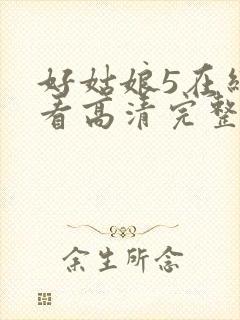 好姑娘5在线
看高清完整
余生所念